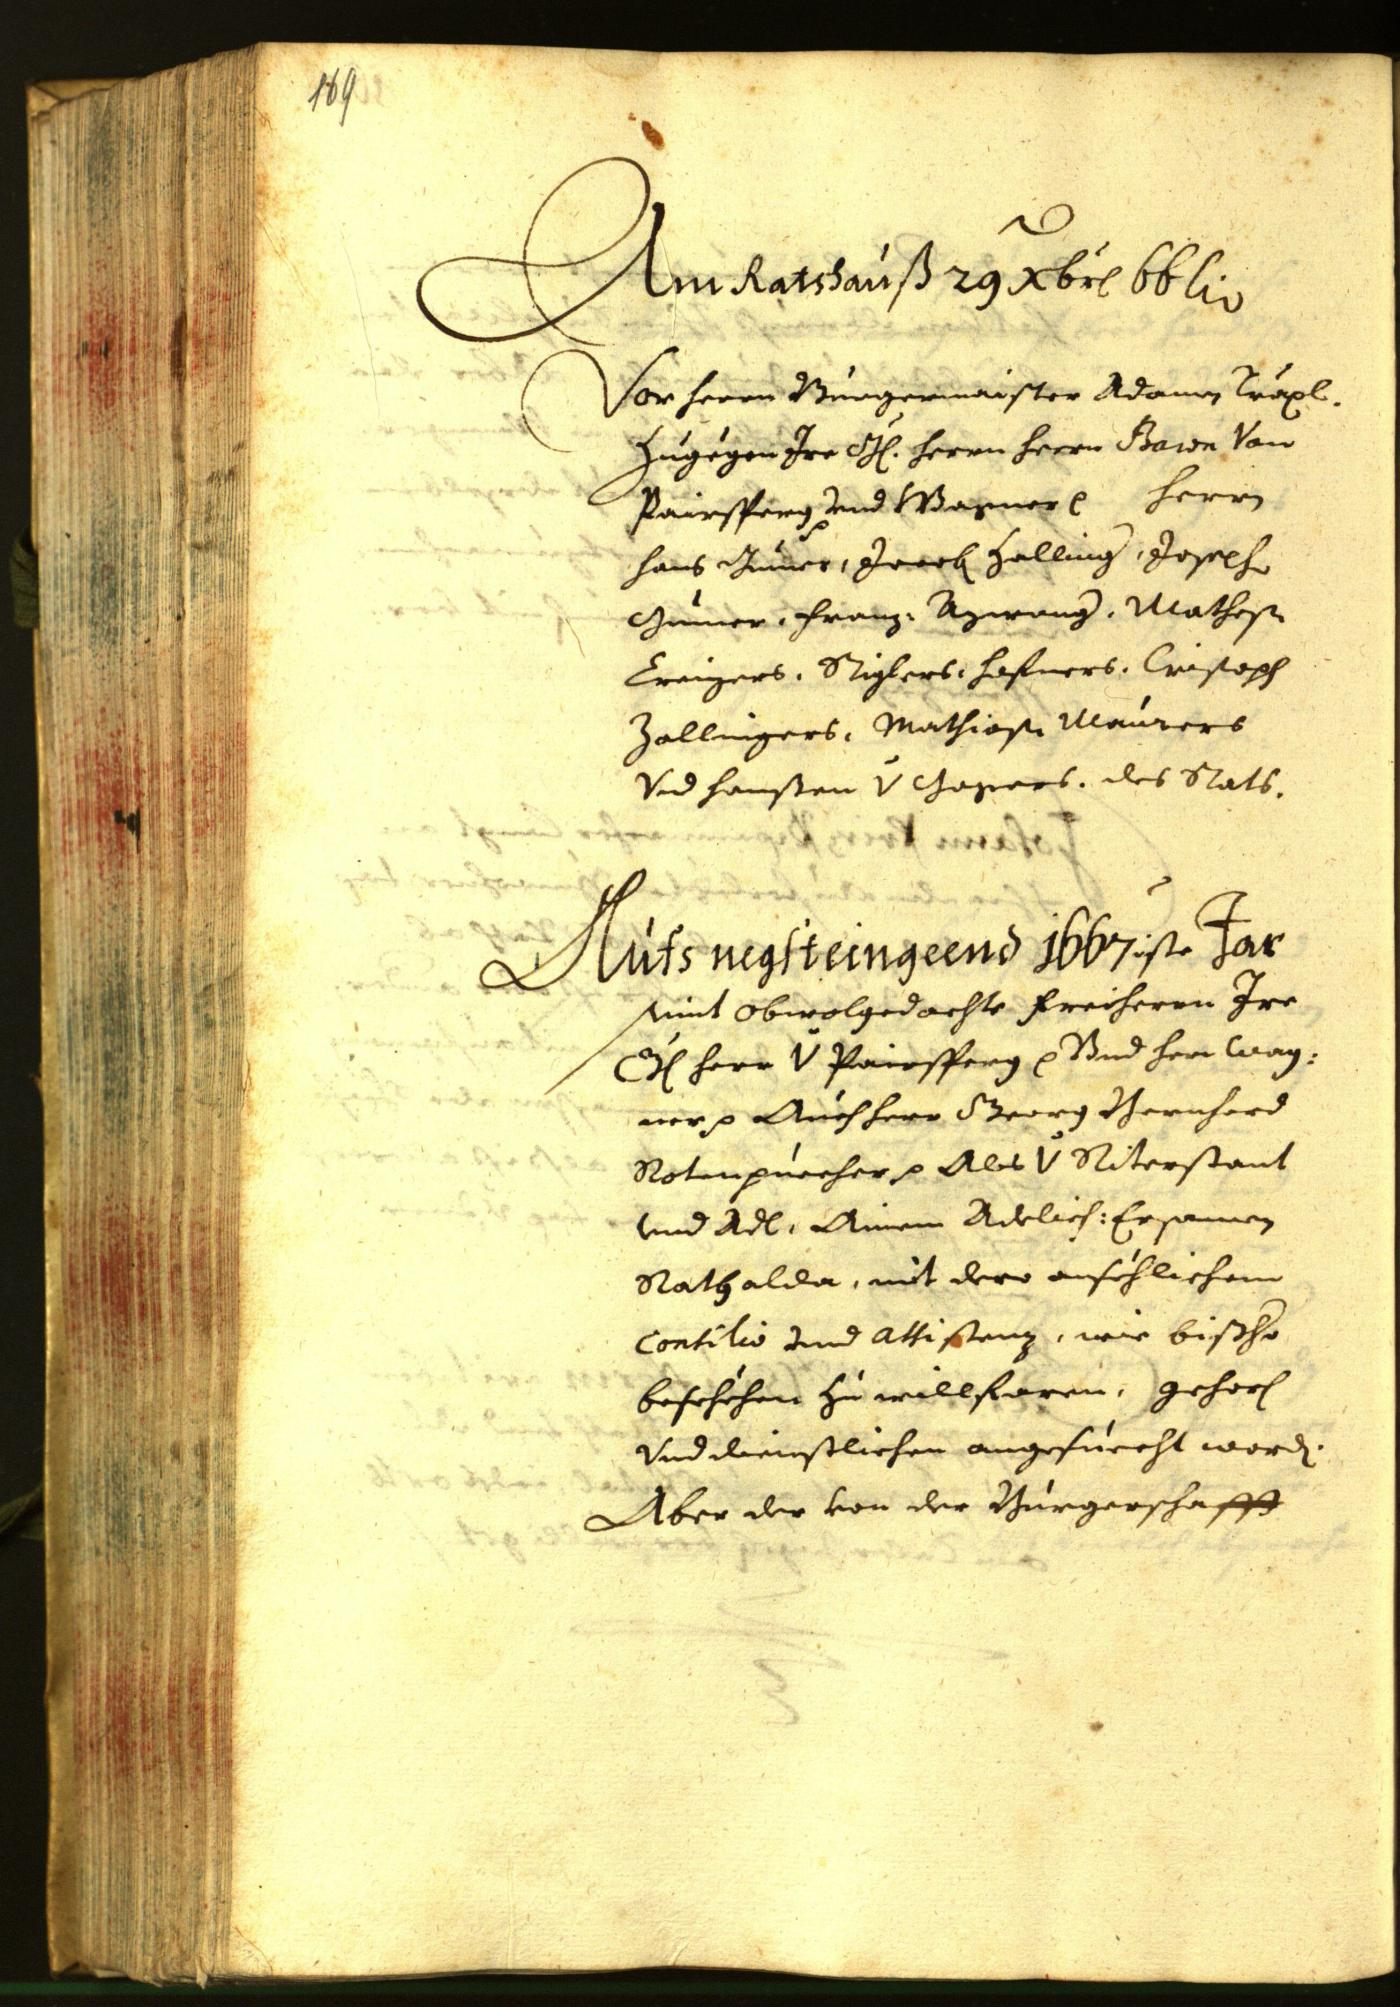 169
Am Ratshauß 29 Xbris 66 %
Vor herrn Burgermaister Adamen Träxl.
Zugegen Ire Gl. herrn herrn Baron Von
Pairsperg und Wagner p herrn
hans Gumer, Jacob Zalling, Joseph
Gumer, Franz Azwang, Mathes
Creizers, Riglers, Hafners, Cristoph
Zallingers, Mathias Maurers
Und hansen V Gazners, des Rats.
Aufs negsteingeend 1667iste Jar
sint obwolgedachte Freiherrn Ire
Gl herr V Pairsperg p Und herr Wag:
ner p Auch herr Georg Bernhard
Rotenpuecher p Als V Riterstant
und Adl, Ainem Adelich: Ersamen
Rath alda, mit dero ansechlichem
Consilio und Assistenz, wie bishero
beschechen zu willfaren, gehors
Und dienstlichen angesuecht word.
Aber der von der Burgerschafft